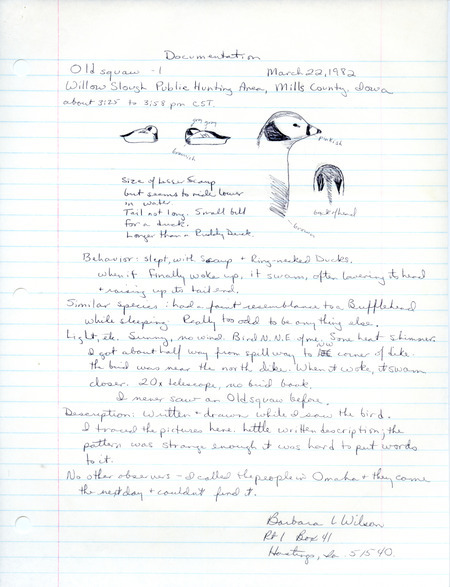 Documentation
Oldsquaw - 1 March 22, 1982
Willow Slough Public Hunting Area, Mills County, Iowa
about 3:25 to 3:58 pm CST.
gray gray
brownish
pinkish
back of head
brown
Size of Lesser Scaup
but seems to ride lower
in water.
Tail not long. Small bill
for a duck.
Longer than a Ruddy Duck.
Behavior: slept, with Scaup + Ring-necked Ducks.
when it finally woke up, it swam, often lowering its head
+ raising up its tail end.
Similar species: had a faint resemblance to a Bufflehead
while sleeping. Really too odd to be any thing else.
Light, etc. Sunny, no wind. Bird N.N.E of me. Some heat shimmer.
I got about half way from spillway to NW corner of dike.
the bird was near the north dike. When it woke, it swam
closer. 20x telescope, no bird book.
I never saw an Oldsquaw before.
Description: written + drawn while I saw the bird.
I traced the pictures here. Little written description; the
pattern was strange enough it was hard to put words
to it.
No other observers - I called the people in Omaha + they came
the next day + couldn't find it.
Barbara L Wilson
Rt 1 Box 41
Hastings, Ia. 51540